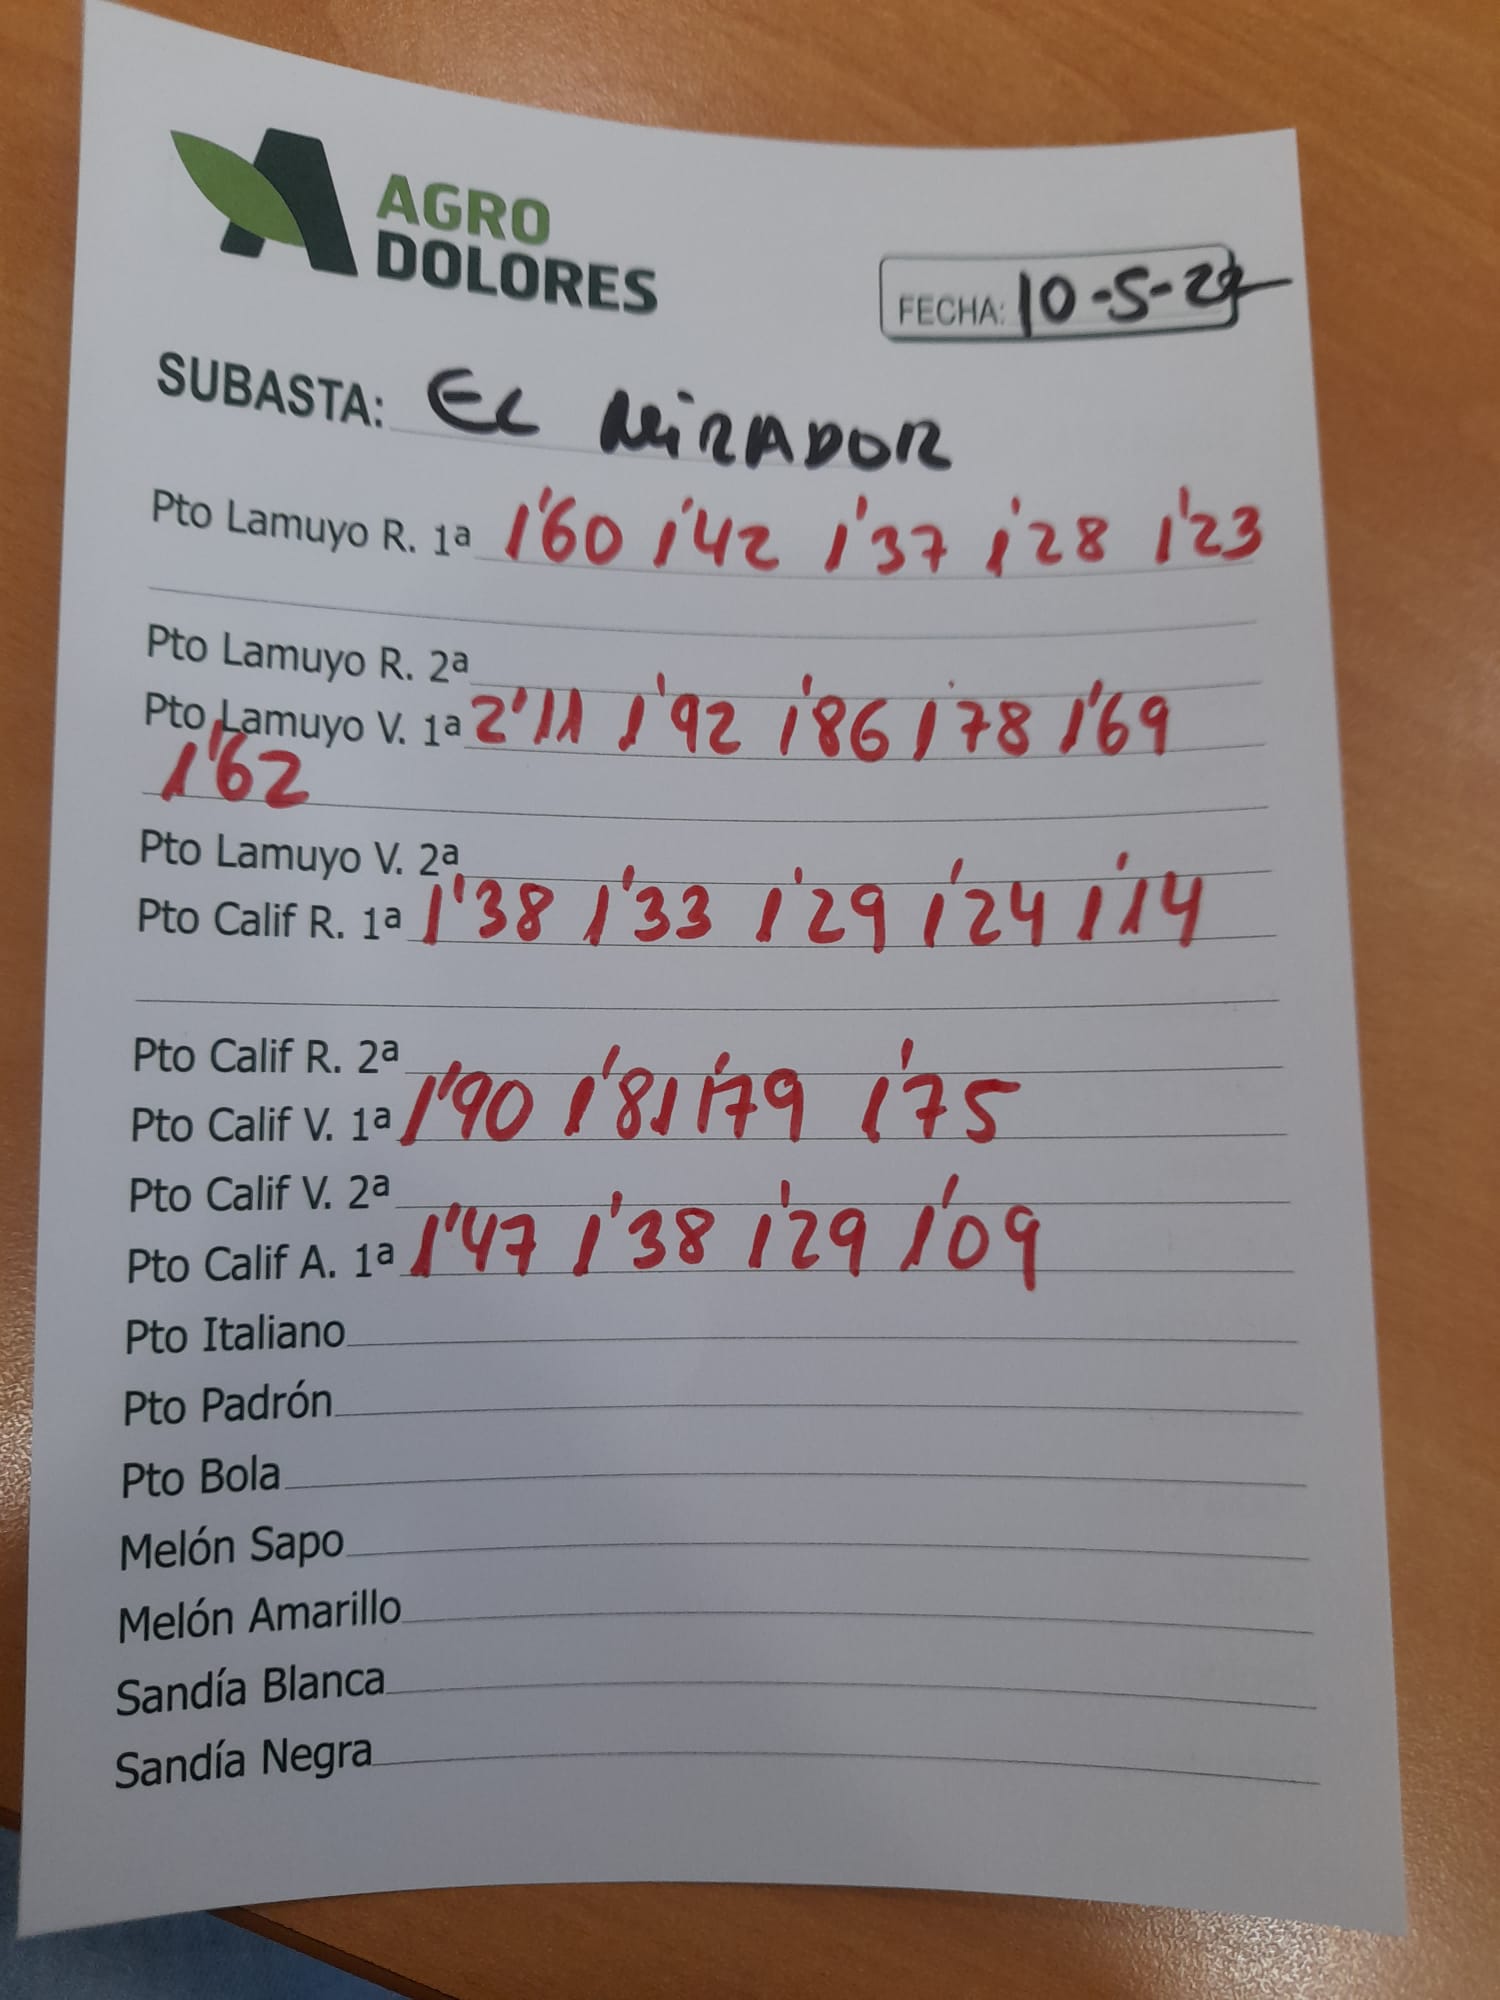 AGRO
DOLORES
FECHA: 10-5-22
SUBASTA: EL MIRADOR
Pto Lamuyo R. 1ª 1'60 1'42 1'37 1'28 1'23
Pto Lamuyo R. 2ª
Pto Lamuyo V. 1ª 2'11 1'92 1'86 1'78 1'69
1'62
Pto Lamuyo V. 2ª
Pto Calif R. 1ª 1'38 1'33 1'29 1'24 1'14
Pto Calif R. 2ª
Pto Calif V. 1ª 1'90 1'81 1'79 1'75
Pto Calif V. 2ª
Pto Calif A. 1ª 1'47 1'38 1'29 1'09
Pto Italiano
Pto Padrón
Pto Bola
Melón Sapo
Melón Amarillo
Sandía Blanca
Sandía Negra